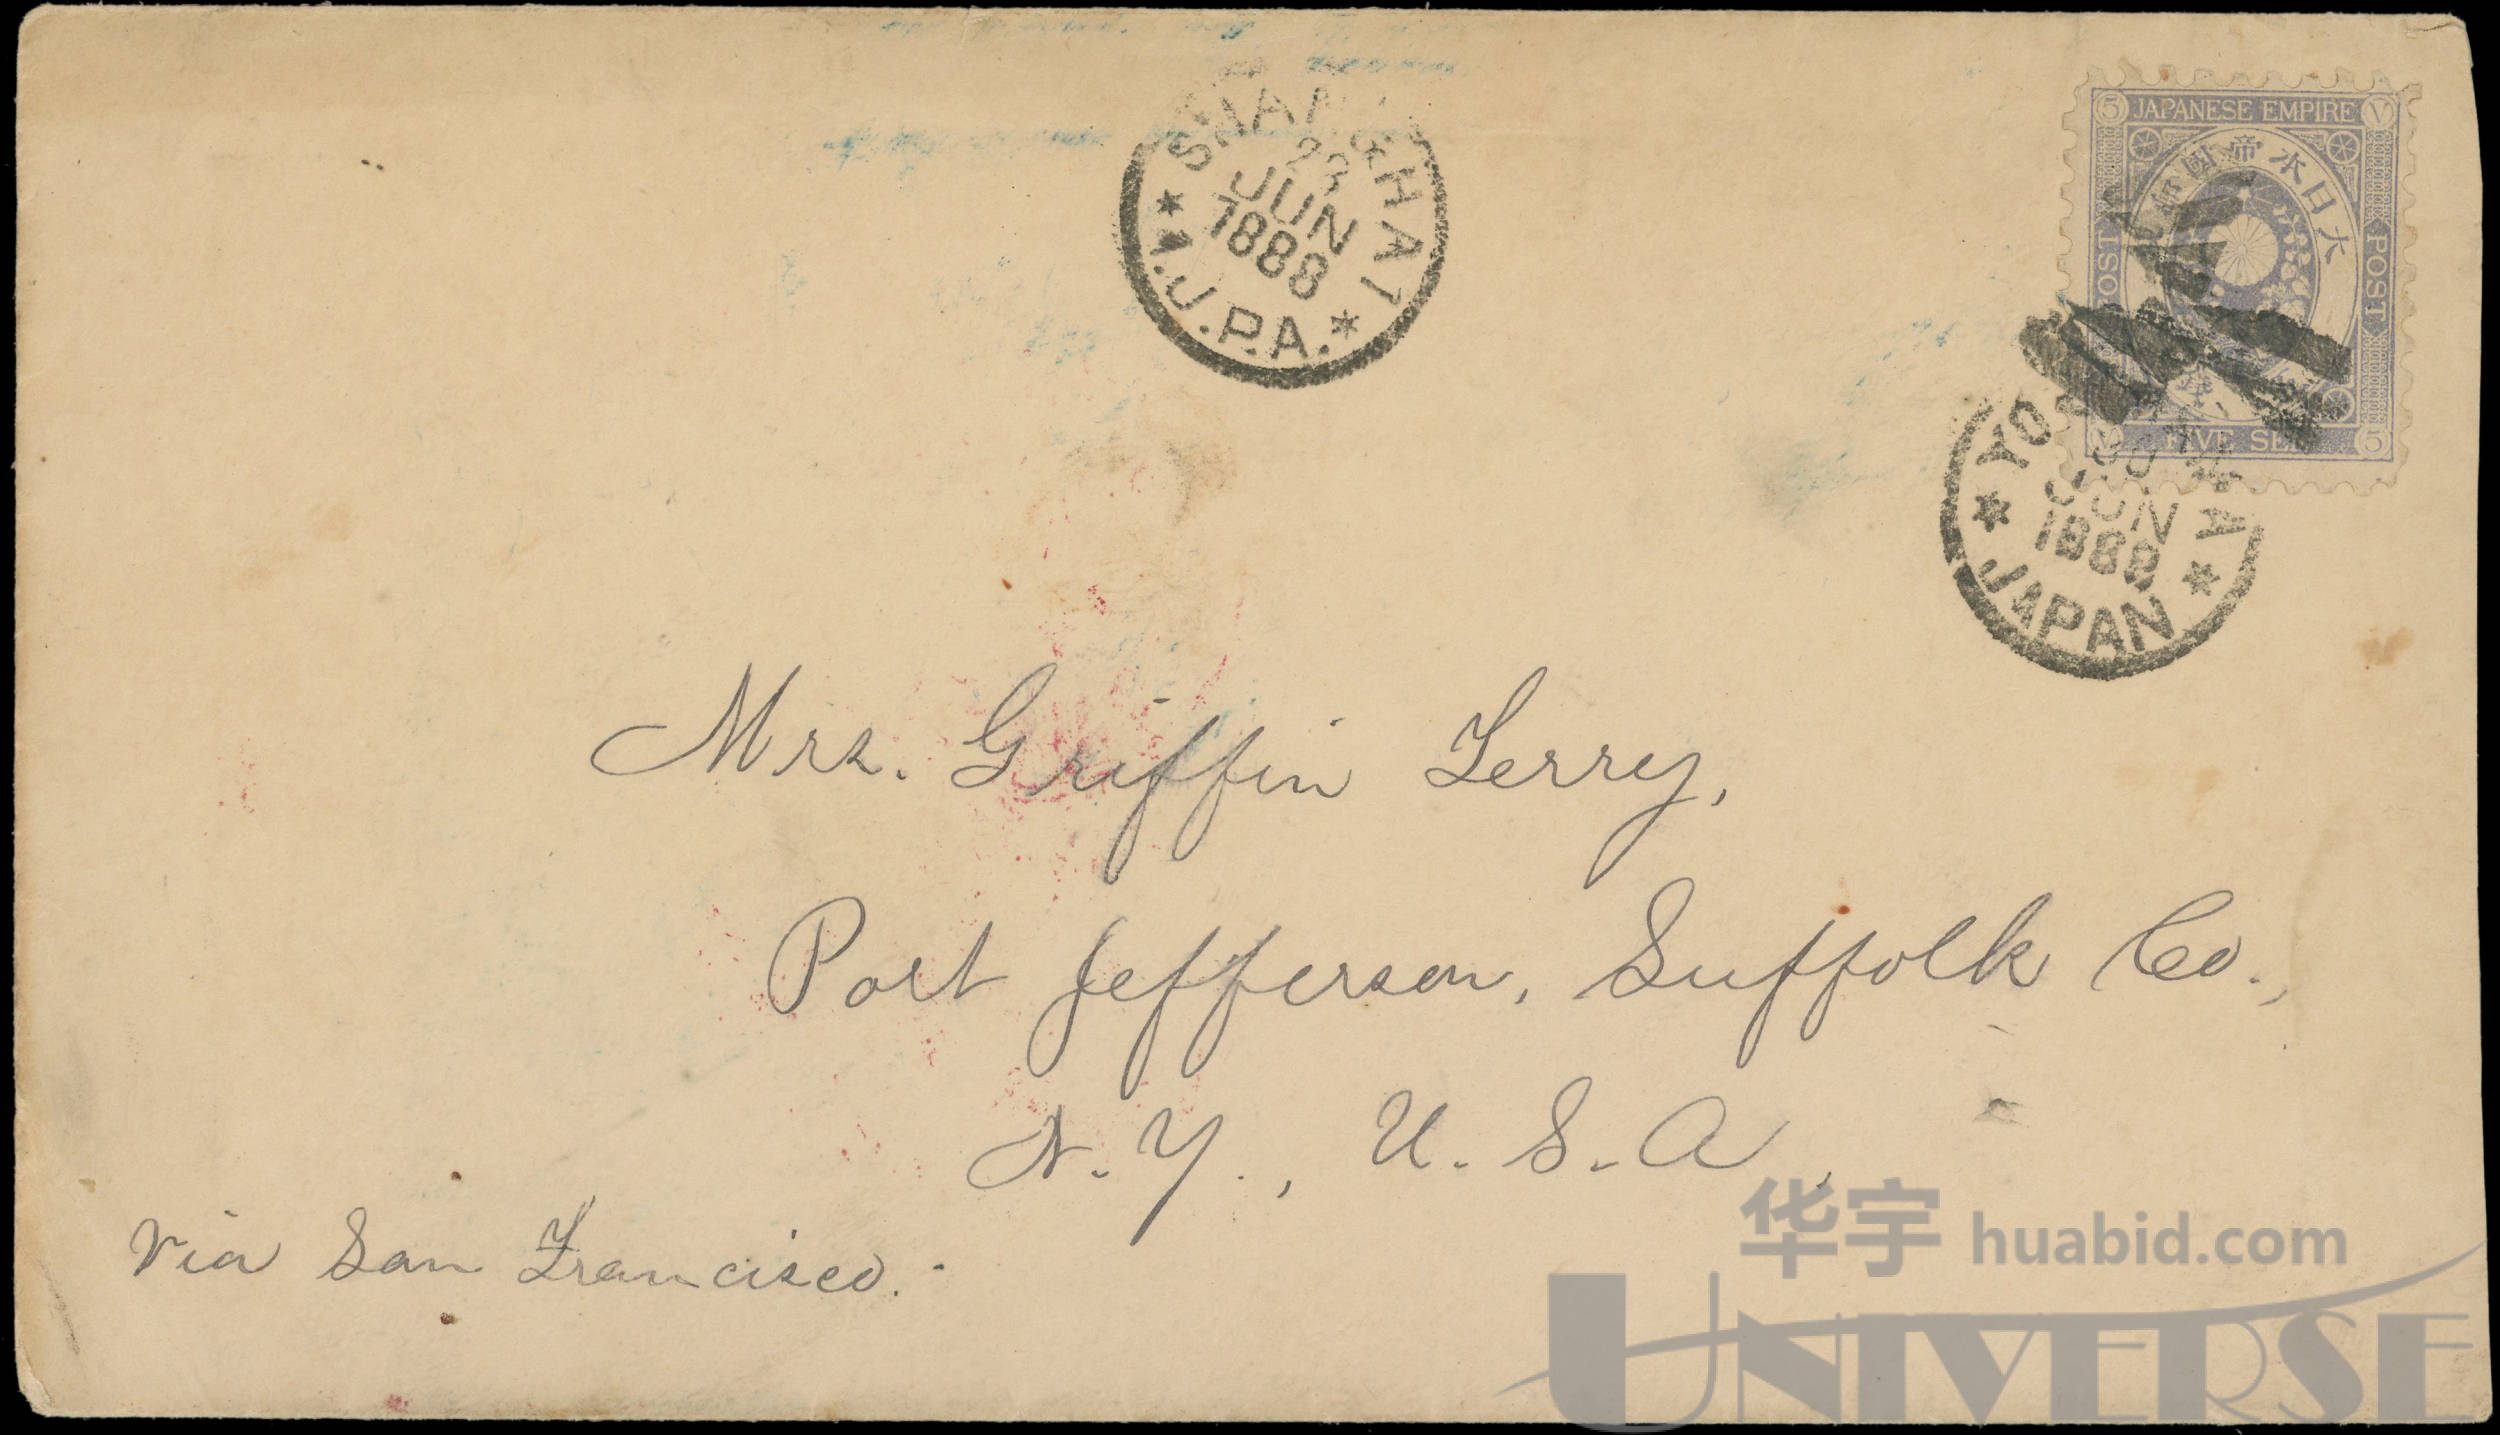 SHANGHAI
23
JUN
1888
I.J.P.A.
5 JAPANESE EMPIRE V
大日本帝國郵
POST
POST
錢
FIVE SE
5
JUN
1888
JAPAN
Mrs. Griffin Terry,
Port Jefferson, Suffolk Co.,
N.Y., U.S.A.
via San Francisco.
华宇 huabid.com
UNIVERSE